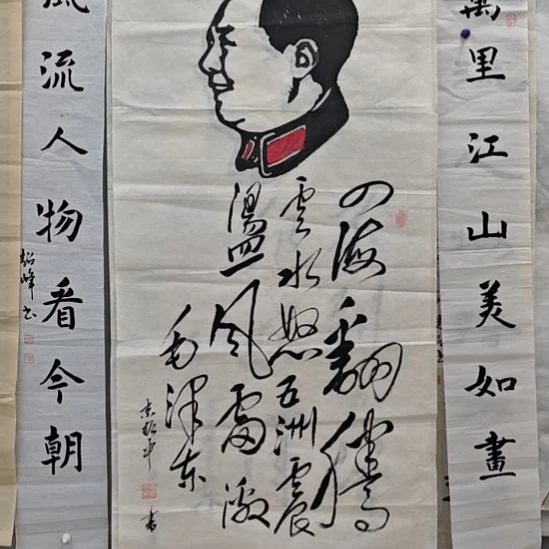 萬里江山美如畫
四海翻騰
雲水怒五洲震
盪風雷激
毛澤東
書
風流人物看今朝
韶峰书